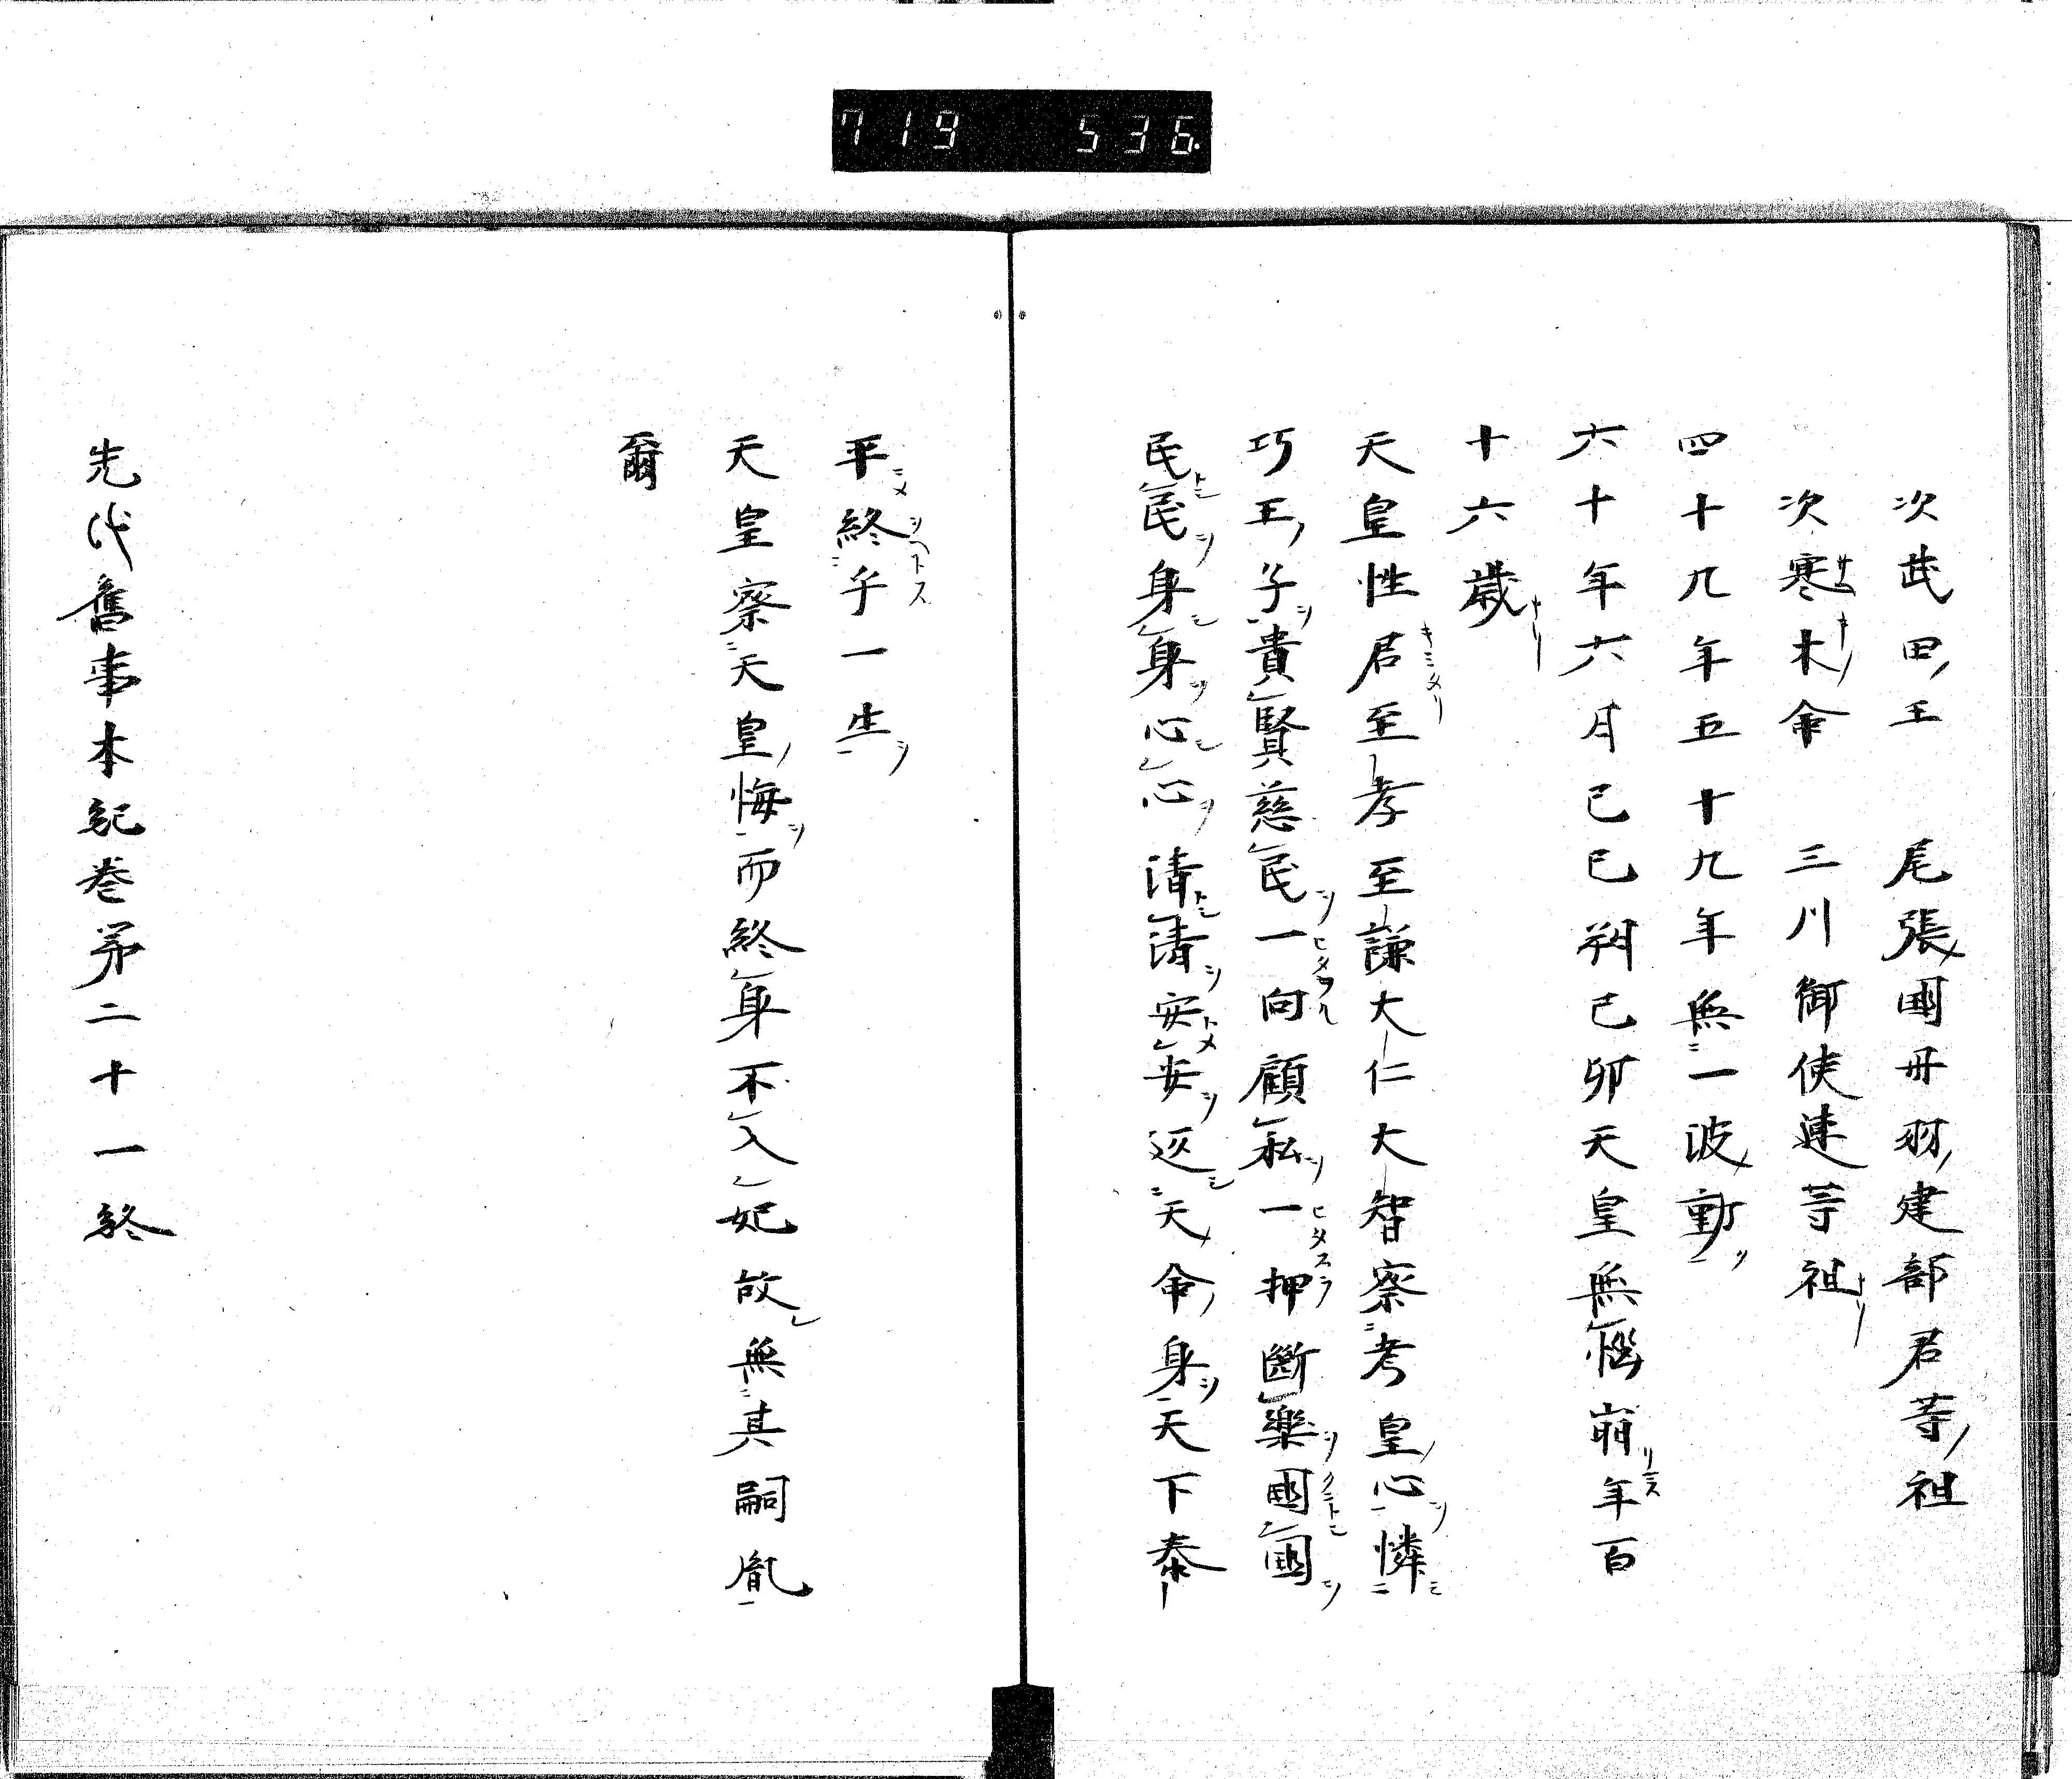 719 536
次武田王 尾張國丹羽建部君等祖
次寒木命 三川御使連等祖
四十九年五十九年無一波動
六十年六月己巳朔己卯天皇無惱崩年百
十六歲
天皇性君至孝至謙大仁大智察考皇心憐
巧王子貴賢慈民一向顧私一押斷樂國國
民民身身心心清清安安返天命身天下泰
平終乎一生
天皇察天皇悔而終身不入妃故無其嗣胤
爾
先代舊事本紀卷第二十一終